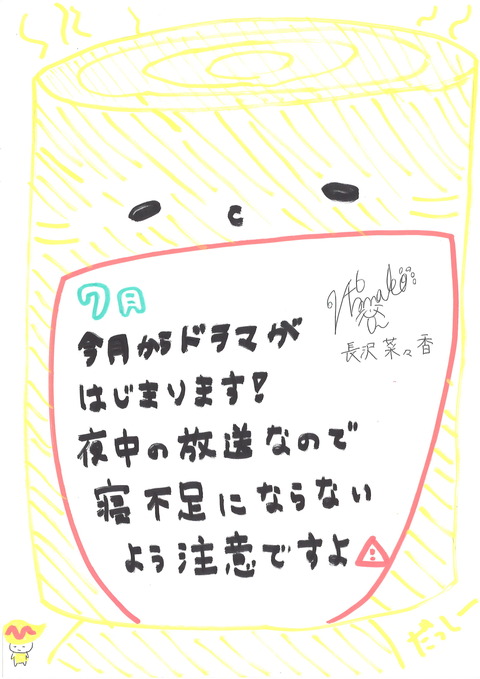 7月
長沢菜々香
今月からドラマが
はじまります!
夜中の放送なので
寝不足にならない
よう注意ですよ
だっしー